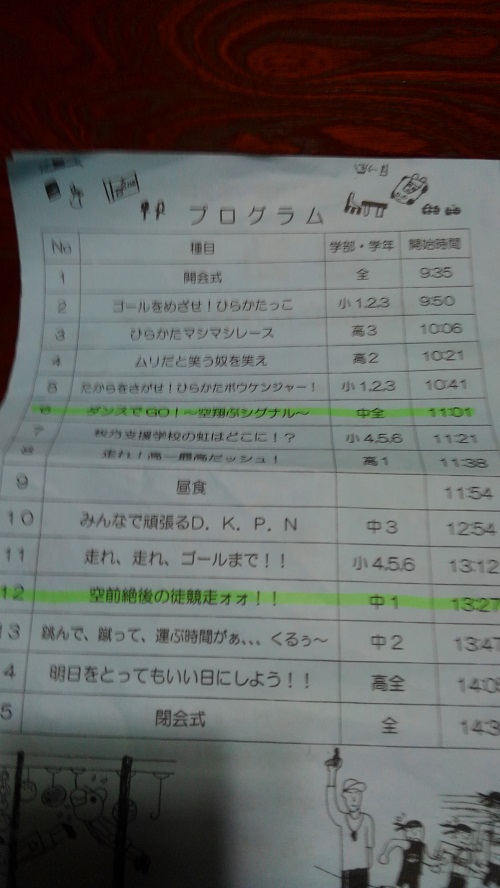 プログラム
No 種目 学部・学年 開始時間
1 開会式 全 9:35
2 ゴールをめざせ！ひらかたっこ 小1,2,3 9:50
3 ひらかたマシマシレース 高3 10:06
4 ムリだと笑う奴を笑え 高2 10:21
5 たからをさがせ！ひらかたボウケンジャー！ 小1,2,3 10:41
6 ダンスでGO！～空翔ぶシグナル～ 中全 11:01
7 枚方支援学校の虹はどこに！？ 小4,5,6 11:21
8 走れ！高一最高だッシュ！ 高1 11:38
9 昼食 11:54
10 みんなで頑張るD．K．P．N 中3 12:54
11 走れ、走れ、ゴールまで！！ 小4,5,6 13:12
12 空前絶後の徒競走ォォ！！ 中1 13:27
3 跳んで、蹴って、運ぶ時間がぁ、、、くるぅ～ 中2 13:47
4 明日をとってもいい日にしよう！！ 高全 14:0
5 閉会式 全 14:3